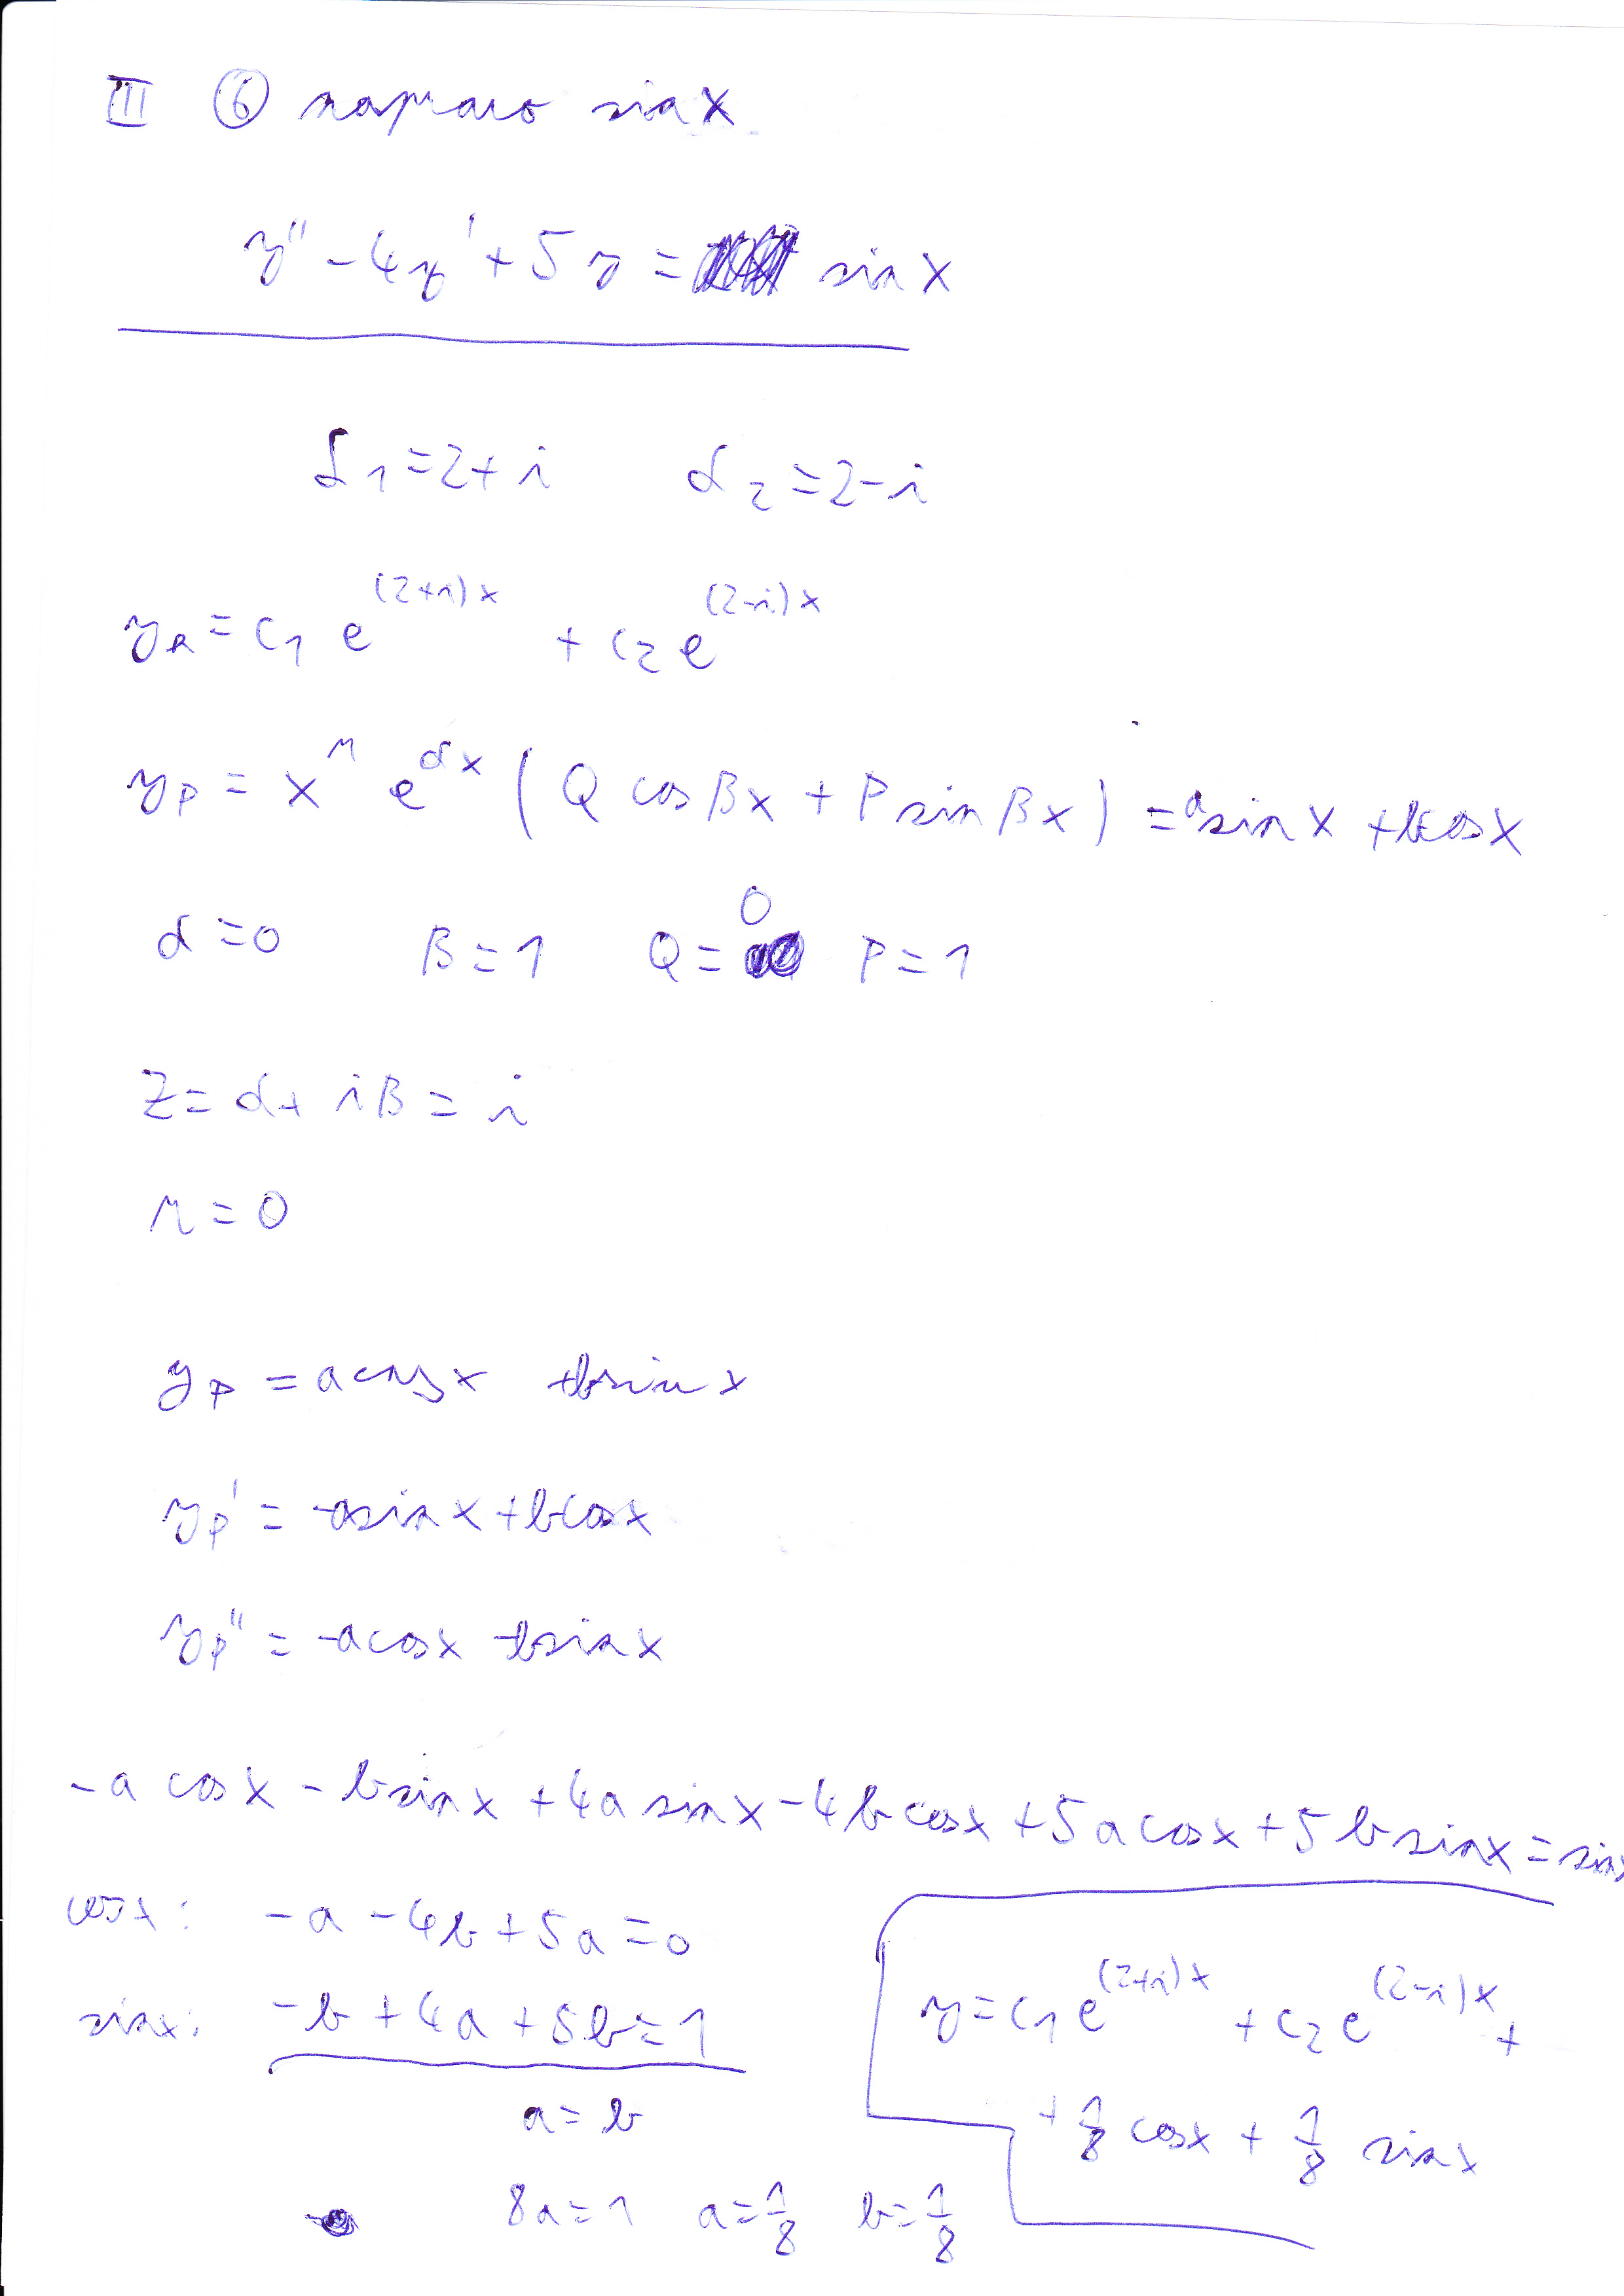 III ⑥ sin x
y'' - 4y' + 5y = sin x
α₁ = 2 + i α₂ = 2 - i
y_R = c₁ e^{(2+i)x} + c₂ e^{(2-i)x}
y_P = x^r e^{αx} ( Q cos βx + P sin βx ) = a sin x + b cos x
α = 0 β = 1 Q = 0 P = 1
Z = α + iβ = i
r = 0
y_P = a cos x + b sin x
y_P' = -a sin x + b cos x
y_P'' = -a cos x - b sin x
-a cos x - b sin x + 4a sin x - 4b cos x + 5a cos x + 5b sin x = sin x
cos x: -a - 4b + 5a = 0
sin x: -b + 4a + 5b = 1
a = b
8a = 1 a = 1/8 b = 1/8
y = c₁ e^{(2+i)x} + c₂ e^{(2-i)x} +
+ 1/8 cos x + 1/8 sin x